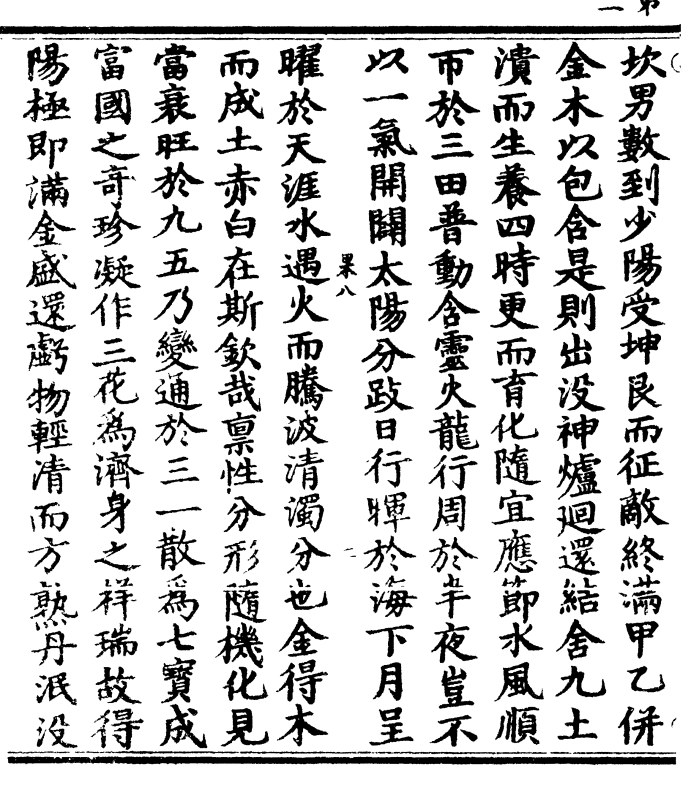 第一
坎男數到少陽受坤艮而征敵終滿甲乙併
金木以包含是則出没神爐迴還結舍九土
潰而生養四時更而育化隨宜應節水風順
帀於三田普動含靈火龍行周於半夜豈不
以一氣開闢太陽分跂日行暉於海下月呈
果八
曜於天涯水遇火而騰波清濁分也金得木
而成土赤白在斯欽哉禀性分形隨機化見
當衰旺於九五乃變通於三一散爲七寶成
富國之奇珍凝作三花爲濟身之祥瑞故得
陽極即滿金盛還虧物輕清而方熟丹泯没